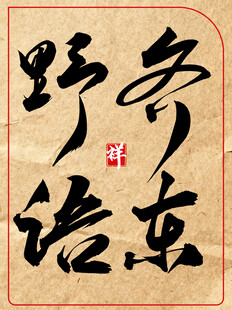 齐东
野语
祥